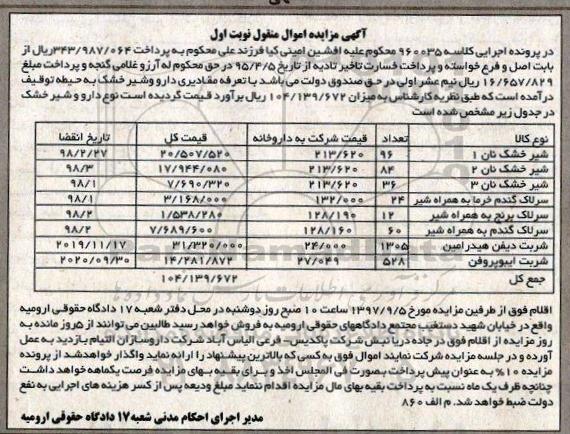 آگهی مزایده اموال منقول نوبت اول
در پرونده اجرایی کلاسه ۹۶۰۰۳۵ محکوم علیه افشین امینی کیا فرزند علی محکوم به پرداخت ۳۴۳/۹۸۷/۰۶۴ریال از
بابت اصل و فرع خواسته و پرداخت خسارت تاخیر تادیه از تاریخ ۹۵/۴/۵ در حق محکوم له آرزو غلامی گنجه و پرداخت مبلغ
۱۶/۶۵۷/۸۲۹ ریال نیم عشر اولی در حق صندوق دولت می باشد با تعرفه مقادیری دارو وشیر خشک به حیطه توقیف
درآمده است که طبق نظریه کارشناس به میزان ۱۰۴/۱۳۹/۶۷۲ ریال برآورد قیمت گردیده است نوع دارو و شیر خشک
در جدول زیر مشخص شده است
نوع کالا تعداد قیمت شرکت به داروخانه قیمت کل تاریخ انقضا
شیر خشک نان ۱ ۹۶ ۲۱۳/۶۲۰ ۲۰/۵۰۷/۵۲۰ ۹۸/۲/۲۷
شیر خشک نان ۲ ۸۴ ۲۱۳/۶۲۰ ۱۷/۹۴۴/۰۸۰ ۹۸/۳
شیر خشک نان ۳ ۳۶ ۲۱۳/۶۲۰ ۷/۶۹۰/۳۲۰ ۹۸/۱
سرلاک گندم خرما به همراه شیر ۲۴ ۱۳۲/۰۰۰ ۳/۱۶۸/۰۰۰ ۹۸/۱
سرلاک برنج به همراه شیر ۱۲ ۱۲۸/۱۹۰ ۱/۵۳۸/۲۸۰ ۹۸/۲
سرلاک گندم به همراه شیر ۶۰ ۱۲۸/۱۶۰ ۷/۶۸۹/۶۰۰ ۹۸/۲
شربت دیفن هیدرامین ۱۳۰۵ ۲۴/۰۰۰ ۳۱/۳۲۰/۰۰۰ ۲۰۱۹/۱۱/۱۷
شربت ایبوپروفن ۵۲۸ ۲۷/۰۴۹ ۱۴/۲۸۱/۸۷۲ ۲۰۲۰/۰۹/۳۰
جمع کل ۱۰۴/۱۳۹/۶۷۲
اقلام فوق از طرفین مزایده مورخ ۱۳۹۷/۹/۵ ساعت ۱۰ صبح روز دوشنبه در محل دفتر شعبه ۱۷ دادگاه حقوقی ارومیه
واقع در خیابان شهید دستغیب مجتمع دادگاههای حقوقی ارومیه به فروش خواهد رسید طالبین می توانند از ۵روز مانده به
روز مزایده از اقلام فوق در جاده دریا نبش شرکت پاکدیس – فرعی الیاس آباد شرکت داروسازان التیام بازدید به عمل
آورده و در جلسه مزایده شرکت نمایند اموال فوق به کسی که بالاترین پیشنهاد را ارائه نماید واگذار خواهدشد از پرونده
مزایده ۱۰% به عنوان پیش پرداخت بصورت فی المجلس اخذ و برای بقیه بهای مزایده فرصت یکماهه خواهد داشت
چنانچه ظرف یک ماه نسبت به پرداخت بقیه بهای مال مزایده اقدام ننماید مبلغ ودیعه پس از کسر هزینه های اجرایی به نفع
دولت ضبط خواهد شد. م الف ۸۶۰
مدیر اجرای احکام مدنی شعبه ۱۷ دادگاه حقوقی ارومیه